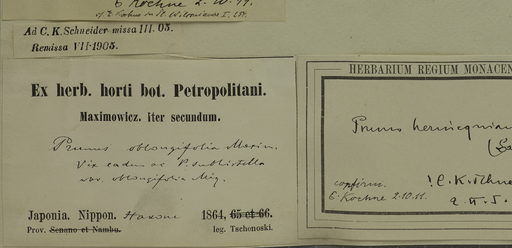 E. Koehne 2. IV. 99.
cf. E. Koehne in Pl. Wilsonianae I, 251.
Ad C. K. Schneider missa III. 05.
Remissa VII-1905.
Ex herb. horti bot. Petropolitani.
Maximowicz. iter secundum.
Prunus oblongifolia Maxim.
Vix eadem ac P. subhirtella
var. oblongifolia Miq.
Japonia. Nippon. Hakone 1864, 65 et 66.
Prov. Senano et Nambu. leg. Tschonoski.
HERBARIUM REGIUM MONACEN
Prunus
confirm. ! E. Koehne
E. Koehne 2.10.11.